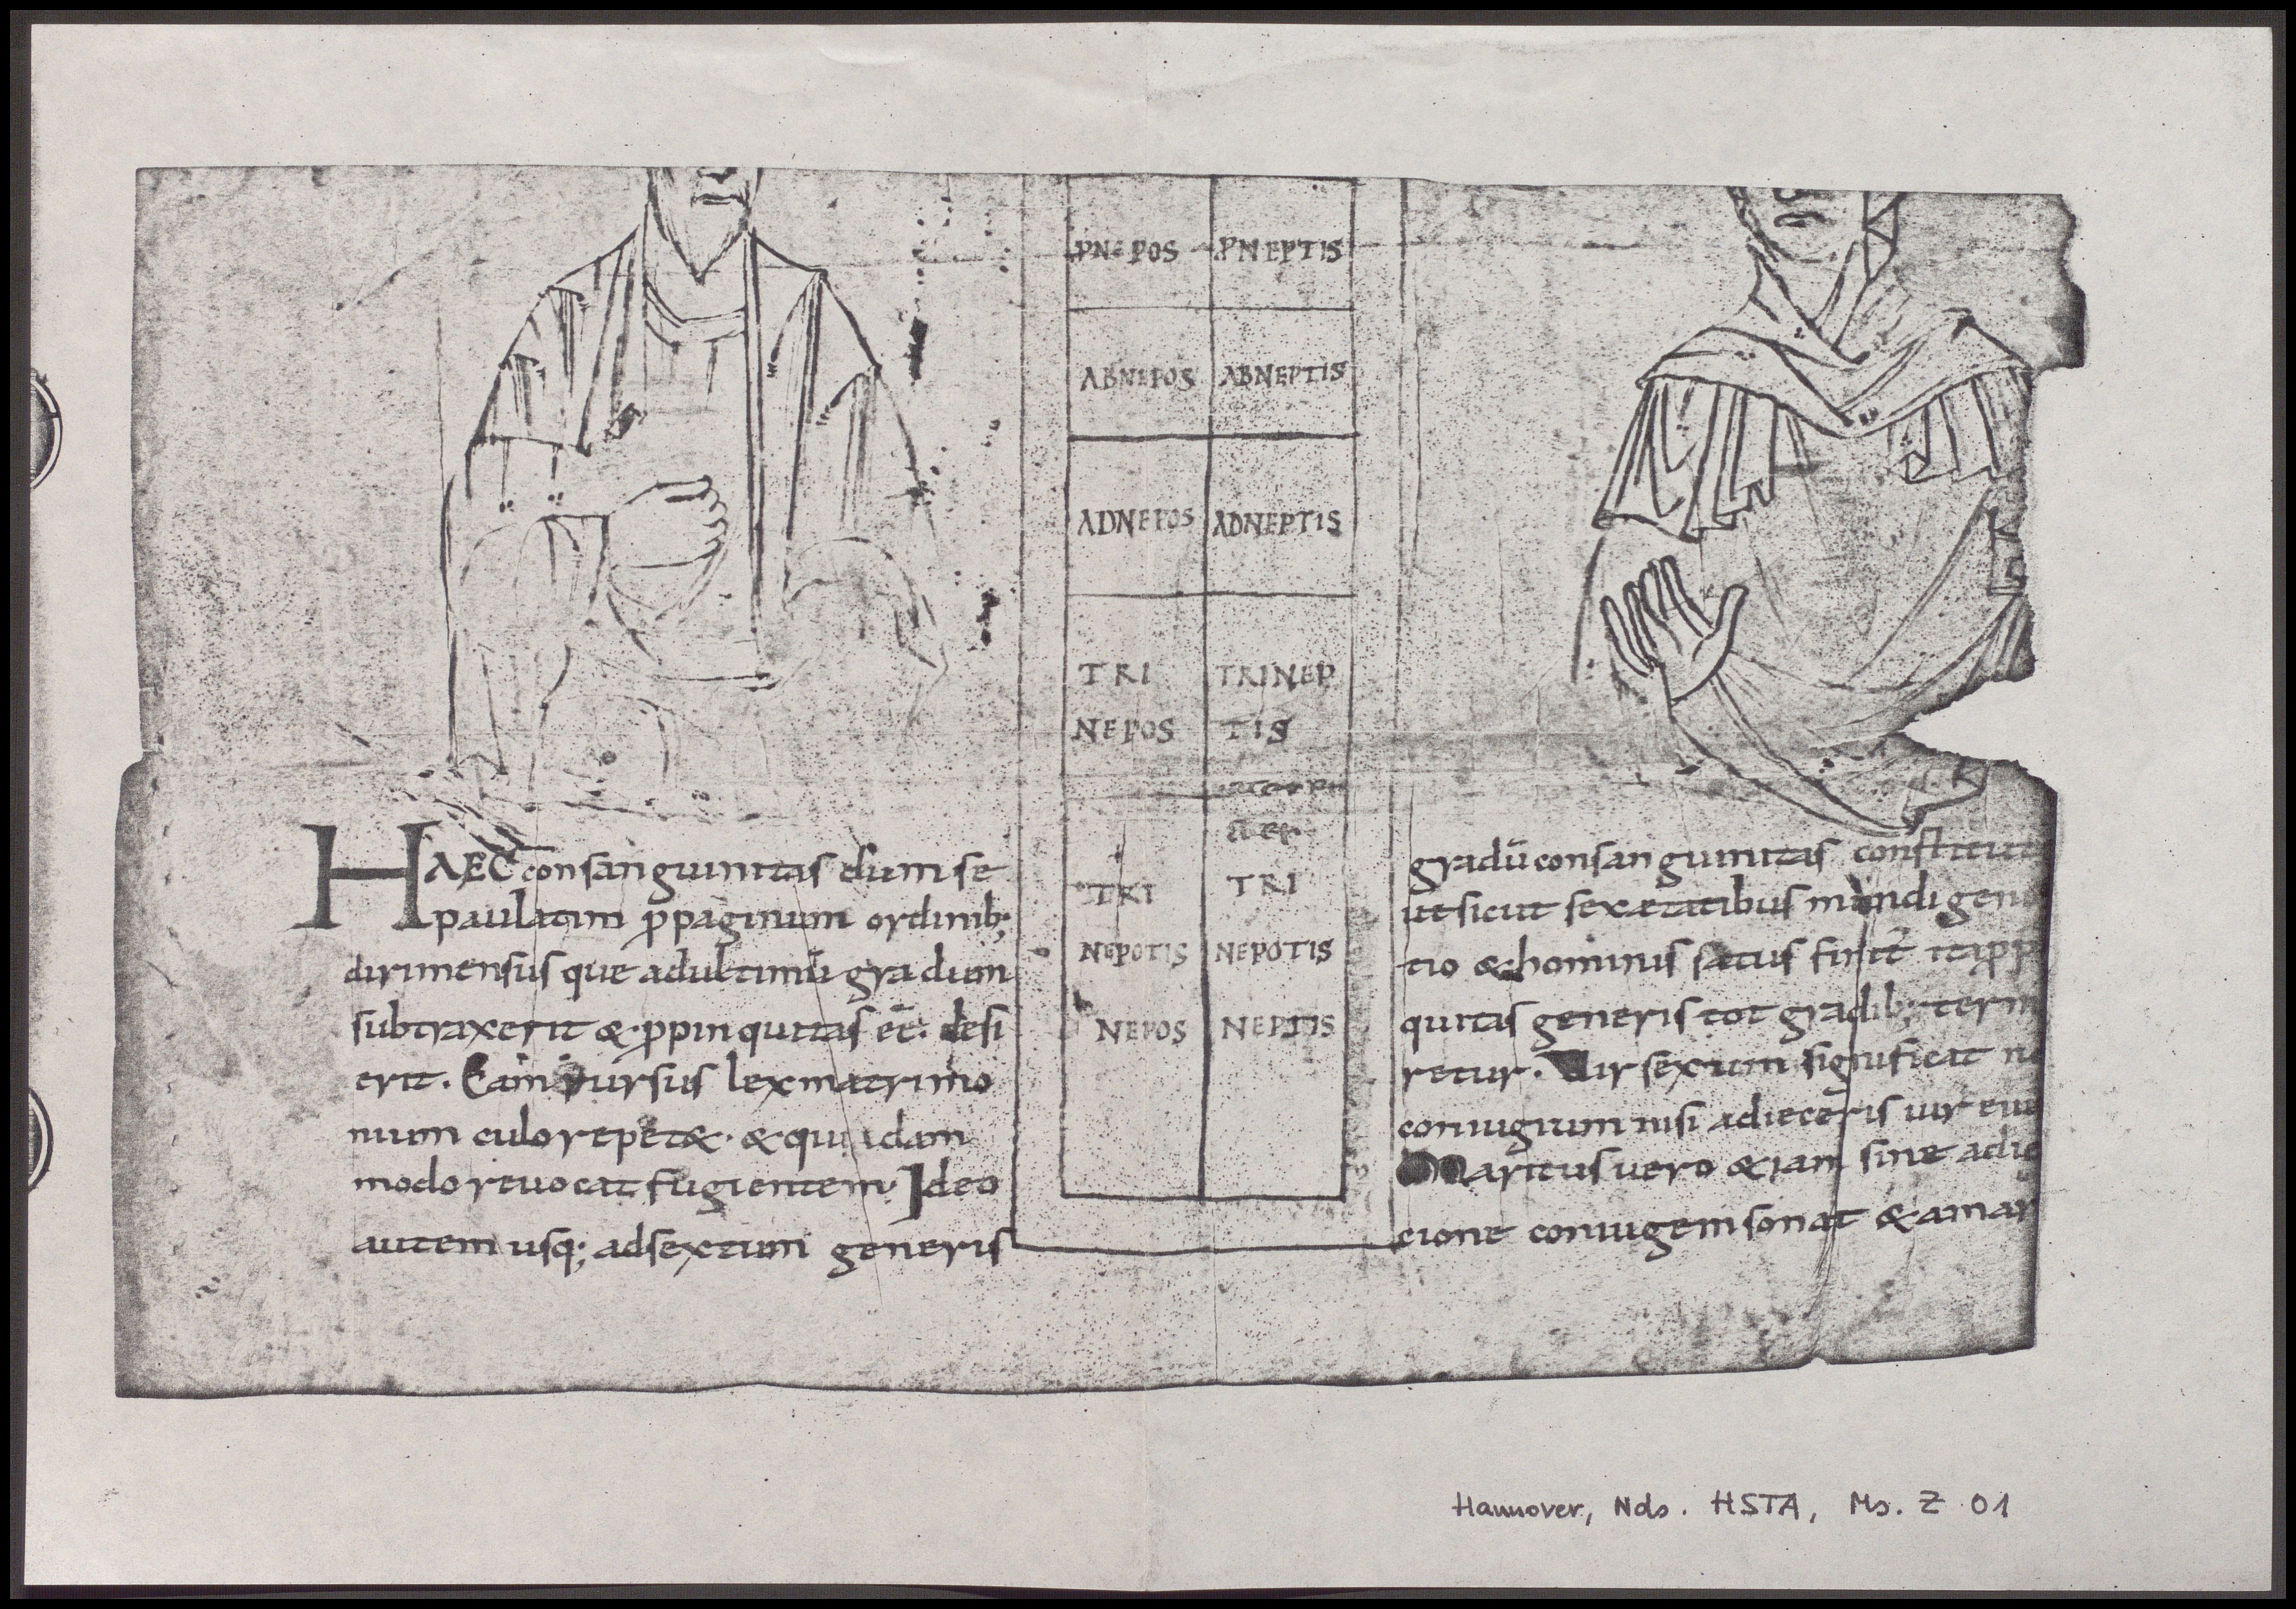 PNEPOS PNEPTIS
ABNEPOS ABNEPTIS
ADNEPOS ADNEPTIS
TRI
NEPOS
TRINEP
TIS
TRI
NEPOTIS
NEPOS
TRI
NEPOTIS
NEPTIS
HAEC consanguinitas dum se
paulatim ppaginum ordinib;
dirimensus que adultimū gradum
subtraxerit & ppinquitas eē. desi
erit. Eam rursus lex matrimo
nium culo repet&. & quidam
modo reuocat fugientem. Ideo
autem usq; adsextum generis
gradū consanguinitas constituta
ut sicut sex etatibus mundi gene
tio & hominis status finit itapp
quitas generis tot gradib; term
retur. Uir sexum significat n
coniugium nisi adieceris uir eius
Maritus uero & iam sine adie
cione coniugem sonat & amar
Hannover, Nds. HSTA, Ms. Z 01